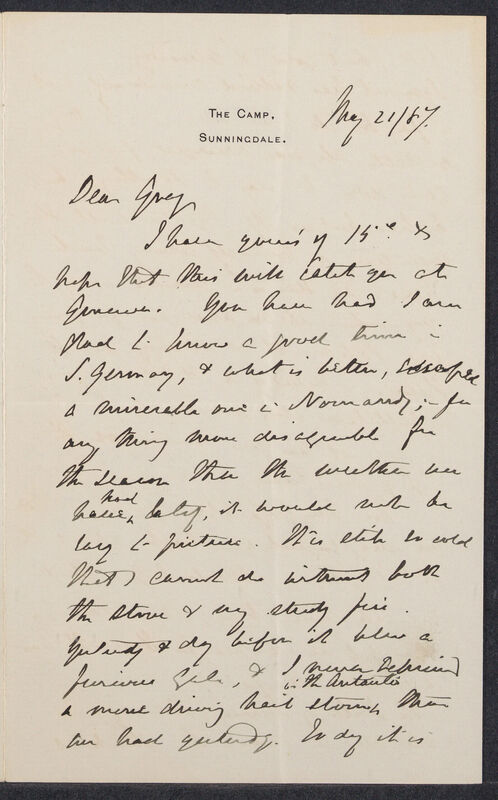 The Camp,
Sunningdale.
May 21/87.
Dear Gray
I have yours of 15th &
hope that this will catch you at
Geneva. You have had I am
glad to know a good time in
S. Germany, & what is better, escaped
a miserable one in Normandy; – for
any thing more disagreeable for
the season than the weather we
have had lately, it would not be
easy to picture. It is still so cold
that I cannot do without both
the stove & my study fire.
Yesterday & day before it blew a
furious gale, & I never experienced in the Antarctic
a more driving hail storm, than
we had yesterday. To day it is